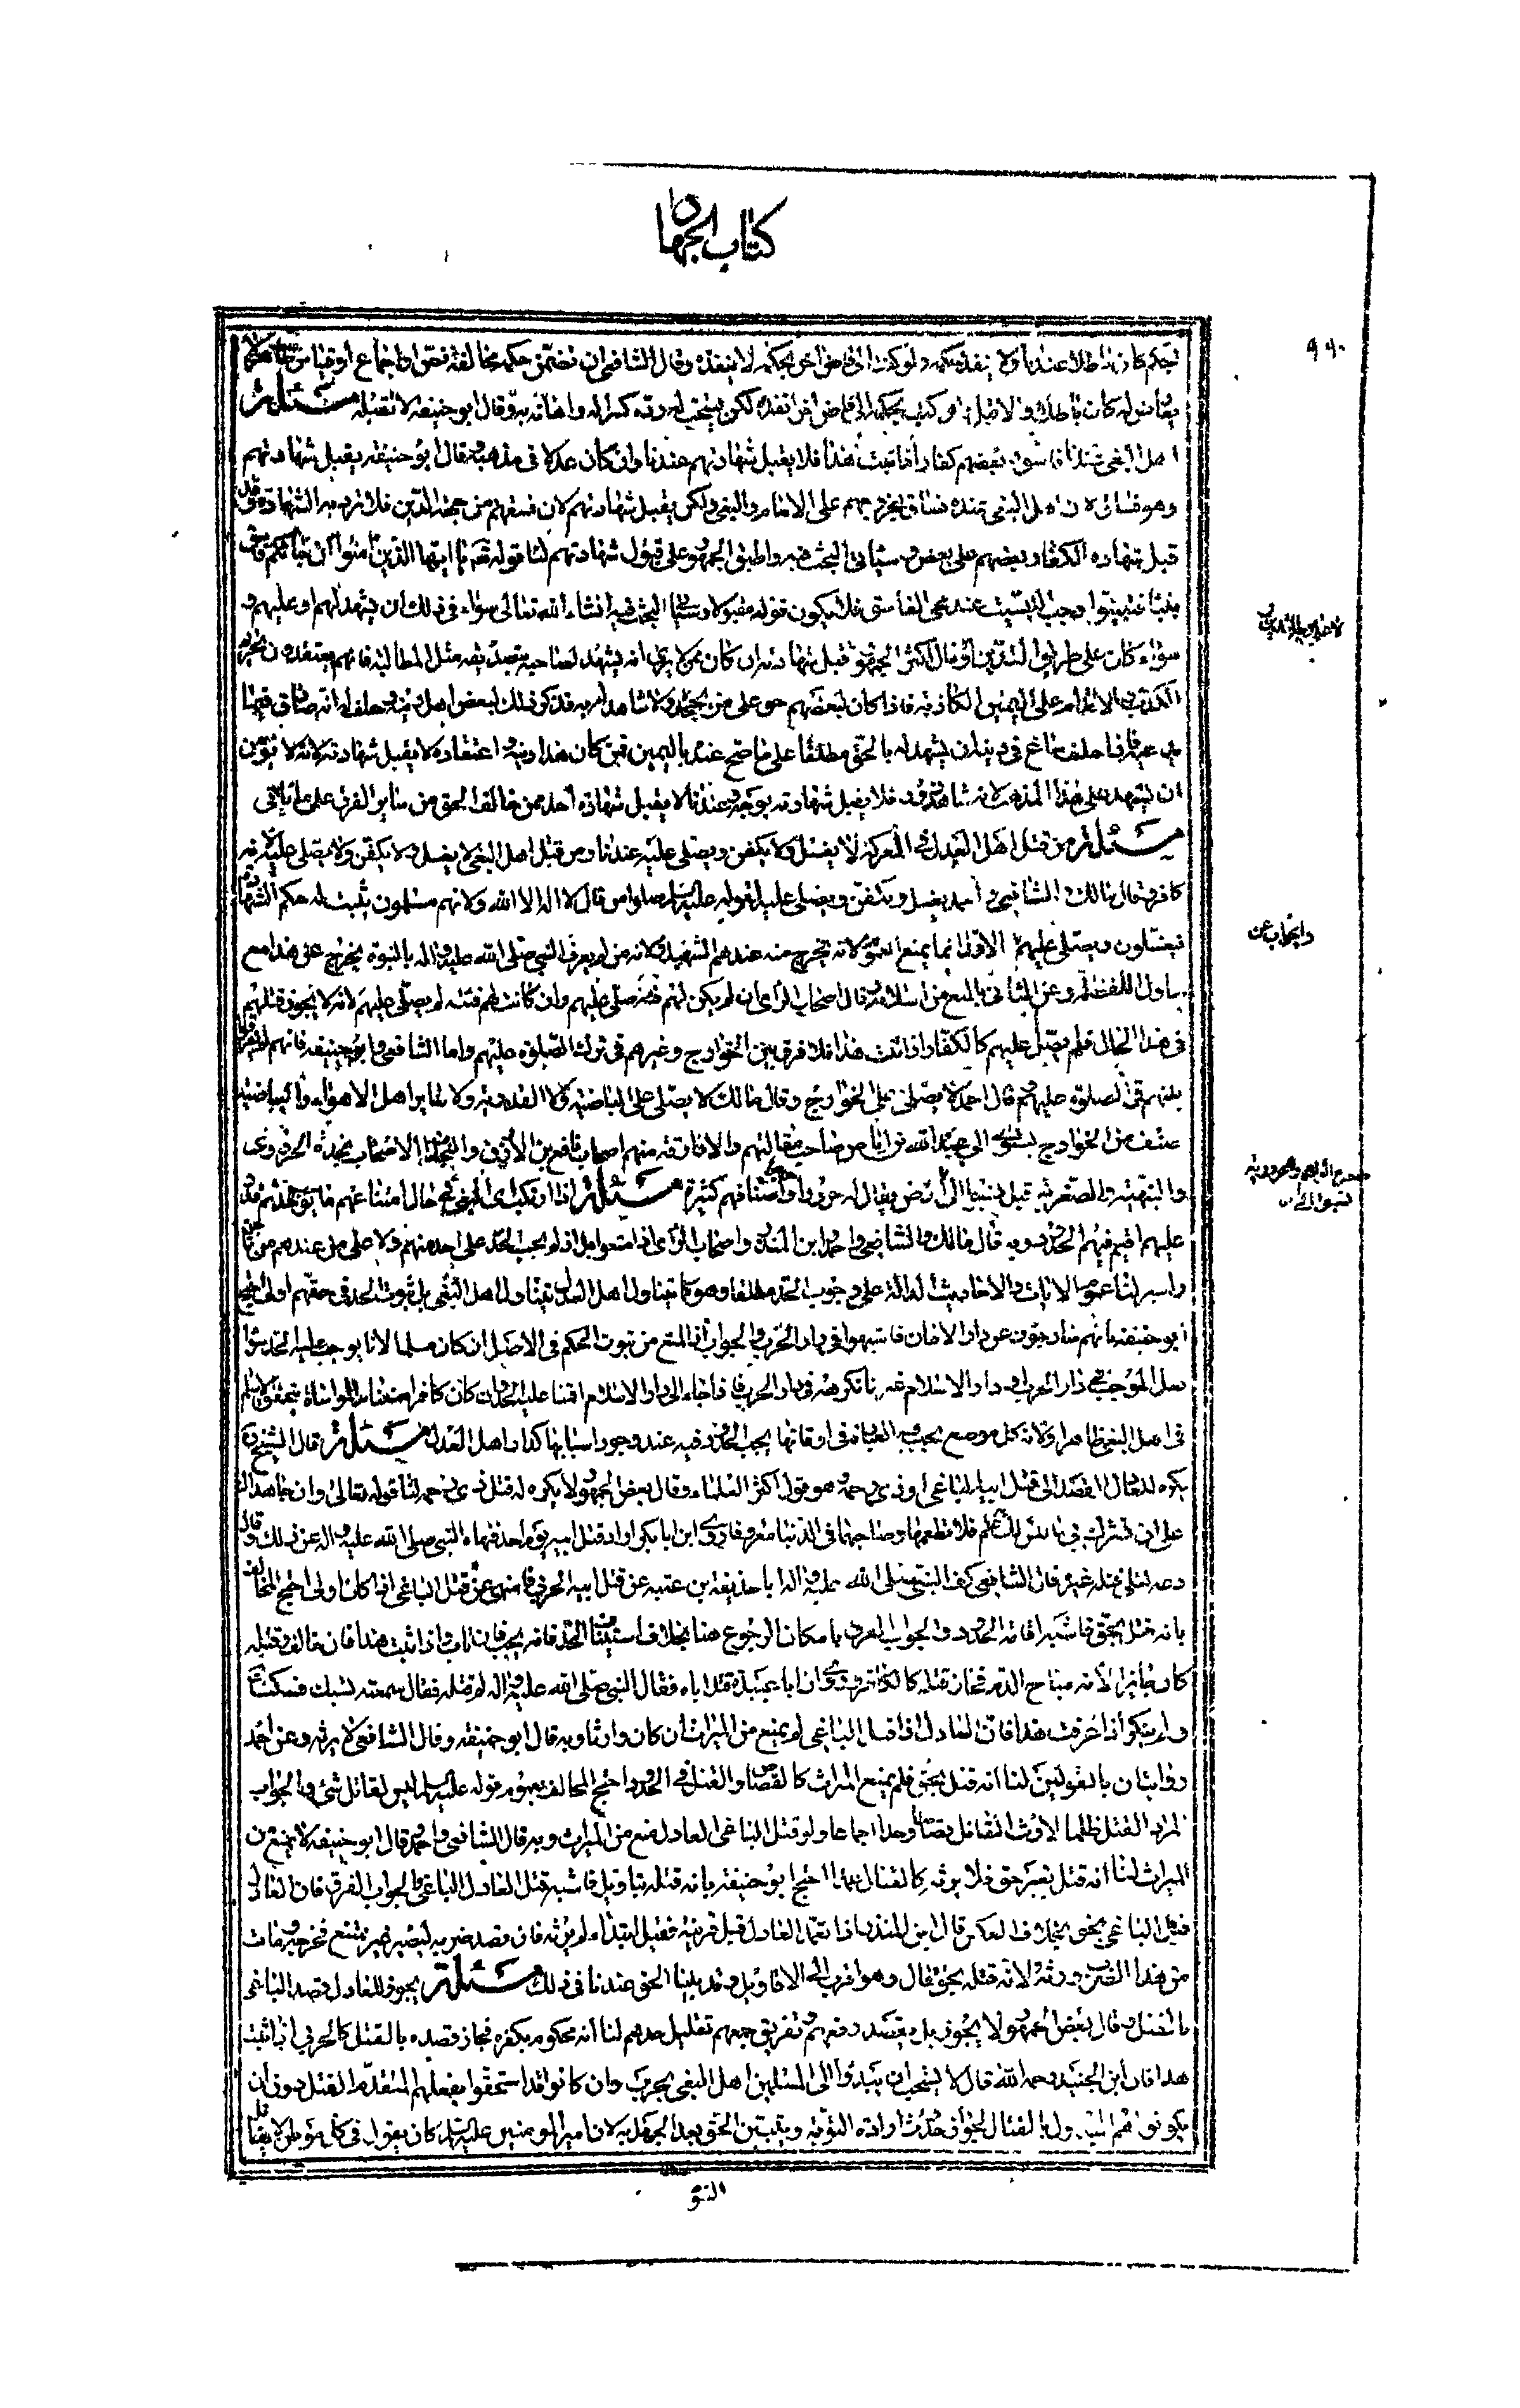 كتاب الجهاد
٩٩٠
بحكم كان باطلا عندنا ولا ينفذ حكمه ولو كتب الى قاض اخر بحكمه لا ينفذه وقال الشافعي ان تضمن حكمه مخالفة نص او اجماع او قياس
كان باطلا والا فلا كتب بحكمه الى قاض اخر انفذه لكن يستحب له رده كسرا له واهانة به وقال ابو حنيفة لا تقبله مسئلة
اهل البغي عندنا فساق بعضهم كفار اذا ثبت هذا فلا يقبل شهادتهم عندنا وان كان عدلا في مذهبه قال ابو حنيفة يقبل شهادتهم
وهو فساق لان اهل البغي عنده فساق بخروجهم على الامام والبغي ولكن يقبل شهادتهم لان فسقهم من جهة الدين فلا ترد به الشهادة وقد
قبل شهادة الكفار بعضهم على بعض وسياتي البحث فيه واطبق الجمهور على قبول شهادتهم لنا قوله تعالى يا ايها الذين امنوا ان جاءكم فاسق
بنبأ فتبينوا اوجب التثبت عند مجئ الفاسق فلا يكون قوله مقبولا وسياتي البحث فيه انشاء الله تعالى سواء في ذلك ان يشهد لهم او عليهم
سواء كان على طريق التدين او قال اكثر الجمهور قبل شهادته ان كان ممن لا يرى انه يشهد لصاحبه بتصديقه مثل الخطابية فانهم يعتقدون تحريم
الكذب والاقدام على اليمين الكاذبة فاذا كان لبعضهم حق على من يجحده ولا شاهد له به فذكر ذلك لبعض اهل دينه وحلف له انه صادق فيما
يدعيه فاذا حلف ساغ في دينه ان يشهد له بالحق مطلقا على ما صح عنده باليمين فمن كان هذا دينه اعتقاده لا يقبل شهادته لانه لا يؤمن
ان يشهد على هذا المذهب لانه شاهد زور فلا يقبل شهادته بوجه وعندنا لا يقبل شهادة احد ممن خالف الحق من ساير الفرق على ما ياتي
مسئلة من قتل اهل العدل في المعركة لا يغسل ولا يكفن ويصلى عليه عندنا ومن قتل اهل البغي لا يغسل ولا يكفن ولا يصلى عليه لانه
كافر وقال مالك والشافعي واحمد يغسل ويكفن ويصلى عليه لقوله عليه السلام صلوا على من قال لا اله الا الله ولانهم مسلمون يثبت له حكم الشهادة
فيغسلون ويصلى عليهم الاول انما يمنع العموم لانه يخرج منه عندهم الشهيد ولانه من لم يعرف النبي صلى الله عليه واله بالنبوة يخرج عن هذا مع
تناول اللفظ له وعن الثاني بالمنع من اسلامه وقال اصحاب الراى ان لم يكن لهم فئة صلى عليهم وان كانت لهم فئة لم يصلى عليهم لانه لا يجوز قتلهم
في هذا الحال فلم يصل عليهم كالكفار اذا ثبت هذا فلا فرق بين الخوارج وغيرهم في ترك الصلوة عليهم واما الشافعي وابو حنيفة فانهم لم يفرقوا
بينهم في الصلوة عليهم قال احمد لا يصلى على الخوارج وقال مالك لا يصلى على الاباضية ولا القدرية ولا ساير اهل الاهواء والاباضية
صنف من الخوارج نسبوا الى عبد الله بن اباض صاحب مقالتهم والازارقة منهم اصحاب نافع بن الازرق والنجدات اصحاب نجدة الحروري
والبيهسية والصفرية قيل نسبوا الى ارض يقال له حرورا واصنافهم كثيرة مسئلة اذا ارتكب اهل البغي في حال امتناعهم ما يوجب الحد ثم قدر
عليهم اقيم فيهم الحدود وبه قال مالك والشافعي واحمد وابن المنذر واصحاب الراى اذا امتنعوا بدار لم يجب الحد على احد منهم ولا على من عندهم من تاجر
واسير لنا عموم الايات والاحاديث الدالة على وجوب الحد مطلقا وهو كما يتناول اهل العدل يتناول اهل البغي بل ثبوت الحد في حقهم اولى احتج
ابو حنيفة بانهم خارجون عن دار الامام فاشبهوا في دار الحرب والجواب المنع من ثبوت الحكم في الاصل ان كان مسلما لانا نوجب عليه الحد سواء
فعل الموجب في دار الحرب او دار الاسلام غير انا نكرهه في دار الحرب فاذا جاء الى دار الاسلام اقمنا عليه الحد وان كان كافرا منعنا المواساة
في اهل البغي ظاهرا ولان كل موضع يجب فيه العبادة في اوقاتها يجب الحدود فيه عند وجود اسبابها كدار اهل العدل مسئلة قال الشيخ ره
يكره للعادل القصد الى قتل ابيه الباغي او ذي رحمه وهو قول اكثر العلماء وقال بعض الجمهور لا يكره له قتل ذي رحمه لنا قوله تعالى وان جاهداك
على ان تشرك بي ما ليس لك به علم فلا تطعهما وصاحبهما في الدنيا معروفا وروى ان ابا بكر اراد قتل ابيه يوم احد فنهاه النبي صلى الله عليه واله عن ذلك وقال
دعه ليلي قتله غيرك وقال الشافعي كف النبي صلى الله عليه واله ابا حذيفة بن عتبة عن قتل ابيه الحربي فنهيه عن قتل الباغي اذا كان اولى احتج المخالف
بانه قتل بحق فاشبه اقامة الحدود والجواب الفرق بامكان الرجوع هنا بخلاف استيفاء الحد فانه يجب وان تاب واذا ثبت هذا فان خالف وقتله
كان جايزا لانه مباح الدم فجاز قتله كالكافر وروى ان ابا عبيدة قتل اباه فقال النبي صلى الله عليه واله لم قتلته فقال سمعته يسبك فسكت عنه
ولم ينكر اذا عرفت هذا فان العادل اذا قتل الباغي لم يمنع من الميراث ان كان وارثا وبه قال ابو حنيفة وقال الشافعي لا يرثه وعن احمد
روايتان بالقولين لنا انه قتل بحق فلم يمنع الميراث كالقصاص والقتل في الحدود احتج المخالف بعموم قوله عليه السلام ليس لقاتل شئ والجواب
المراد القتل ظلما لارث القاتل قصاصا وحدا اجماعا ولو قتل الباغي العادل منع من الميراث وبه قال الشافعي واحمد وقال ابو حنيفة لا يمنع من
الميراث لنا انه قتل بغير حق فلا يرث كالقتال عمدا احتج ابو حنيفة بانه قتله بتاويل فاشبه قتل العادل الباغي والجواب الفرق فان العادل
قتل الباغي بحق بخلاف العكس قال ابن المنذر اذا تعمد العادل قتل قريبه فقتله ابتداء لم يرثه فان قصد ضربه ليصير غير ممتنع فجرحه ومات
من هذا الضرب ورثه لانه قتله بحق قال وهو اقرب الى الاقاويل وقد بينا الحق عندنا في ذلك مسئلة يجوز للعادل قصد الباغي
بالقتل وقال بعض الجمهور لا يجوز بل يقصد دفعهم وتفريق جمعهم تقليل حدهم لنا انه محكوم بكفره فجاز قصده بالقتل كالحربي اذا ثبت
هذا فان ابن الجنيد رحمه الله قال لا يستحب ان يبدؤا الى المسلمين اهل البغي بحرب وان كانوا قد استحقوا بفعلهم المتقدم القتل دون ان
يكونوا هم البادون بالقتال لجواز حدث ارادة التوبة وتبيين الحق بعد الجهل به لان امير المومنين عليه السلام كان يقول في كل موطن لا يقاتل
القو